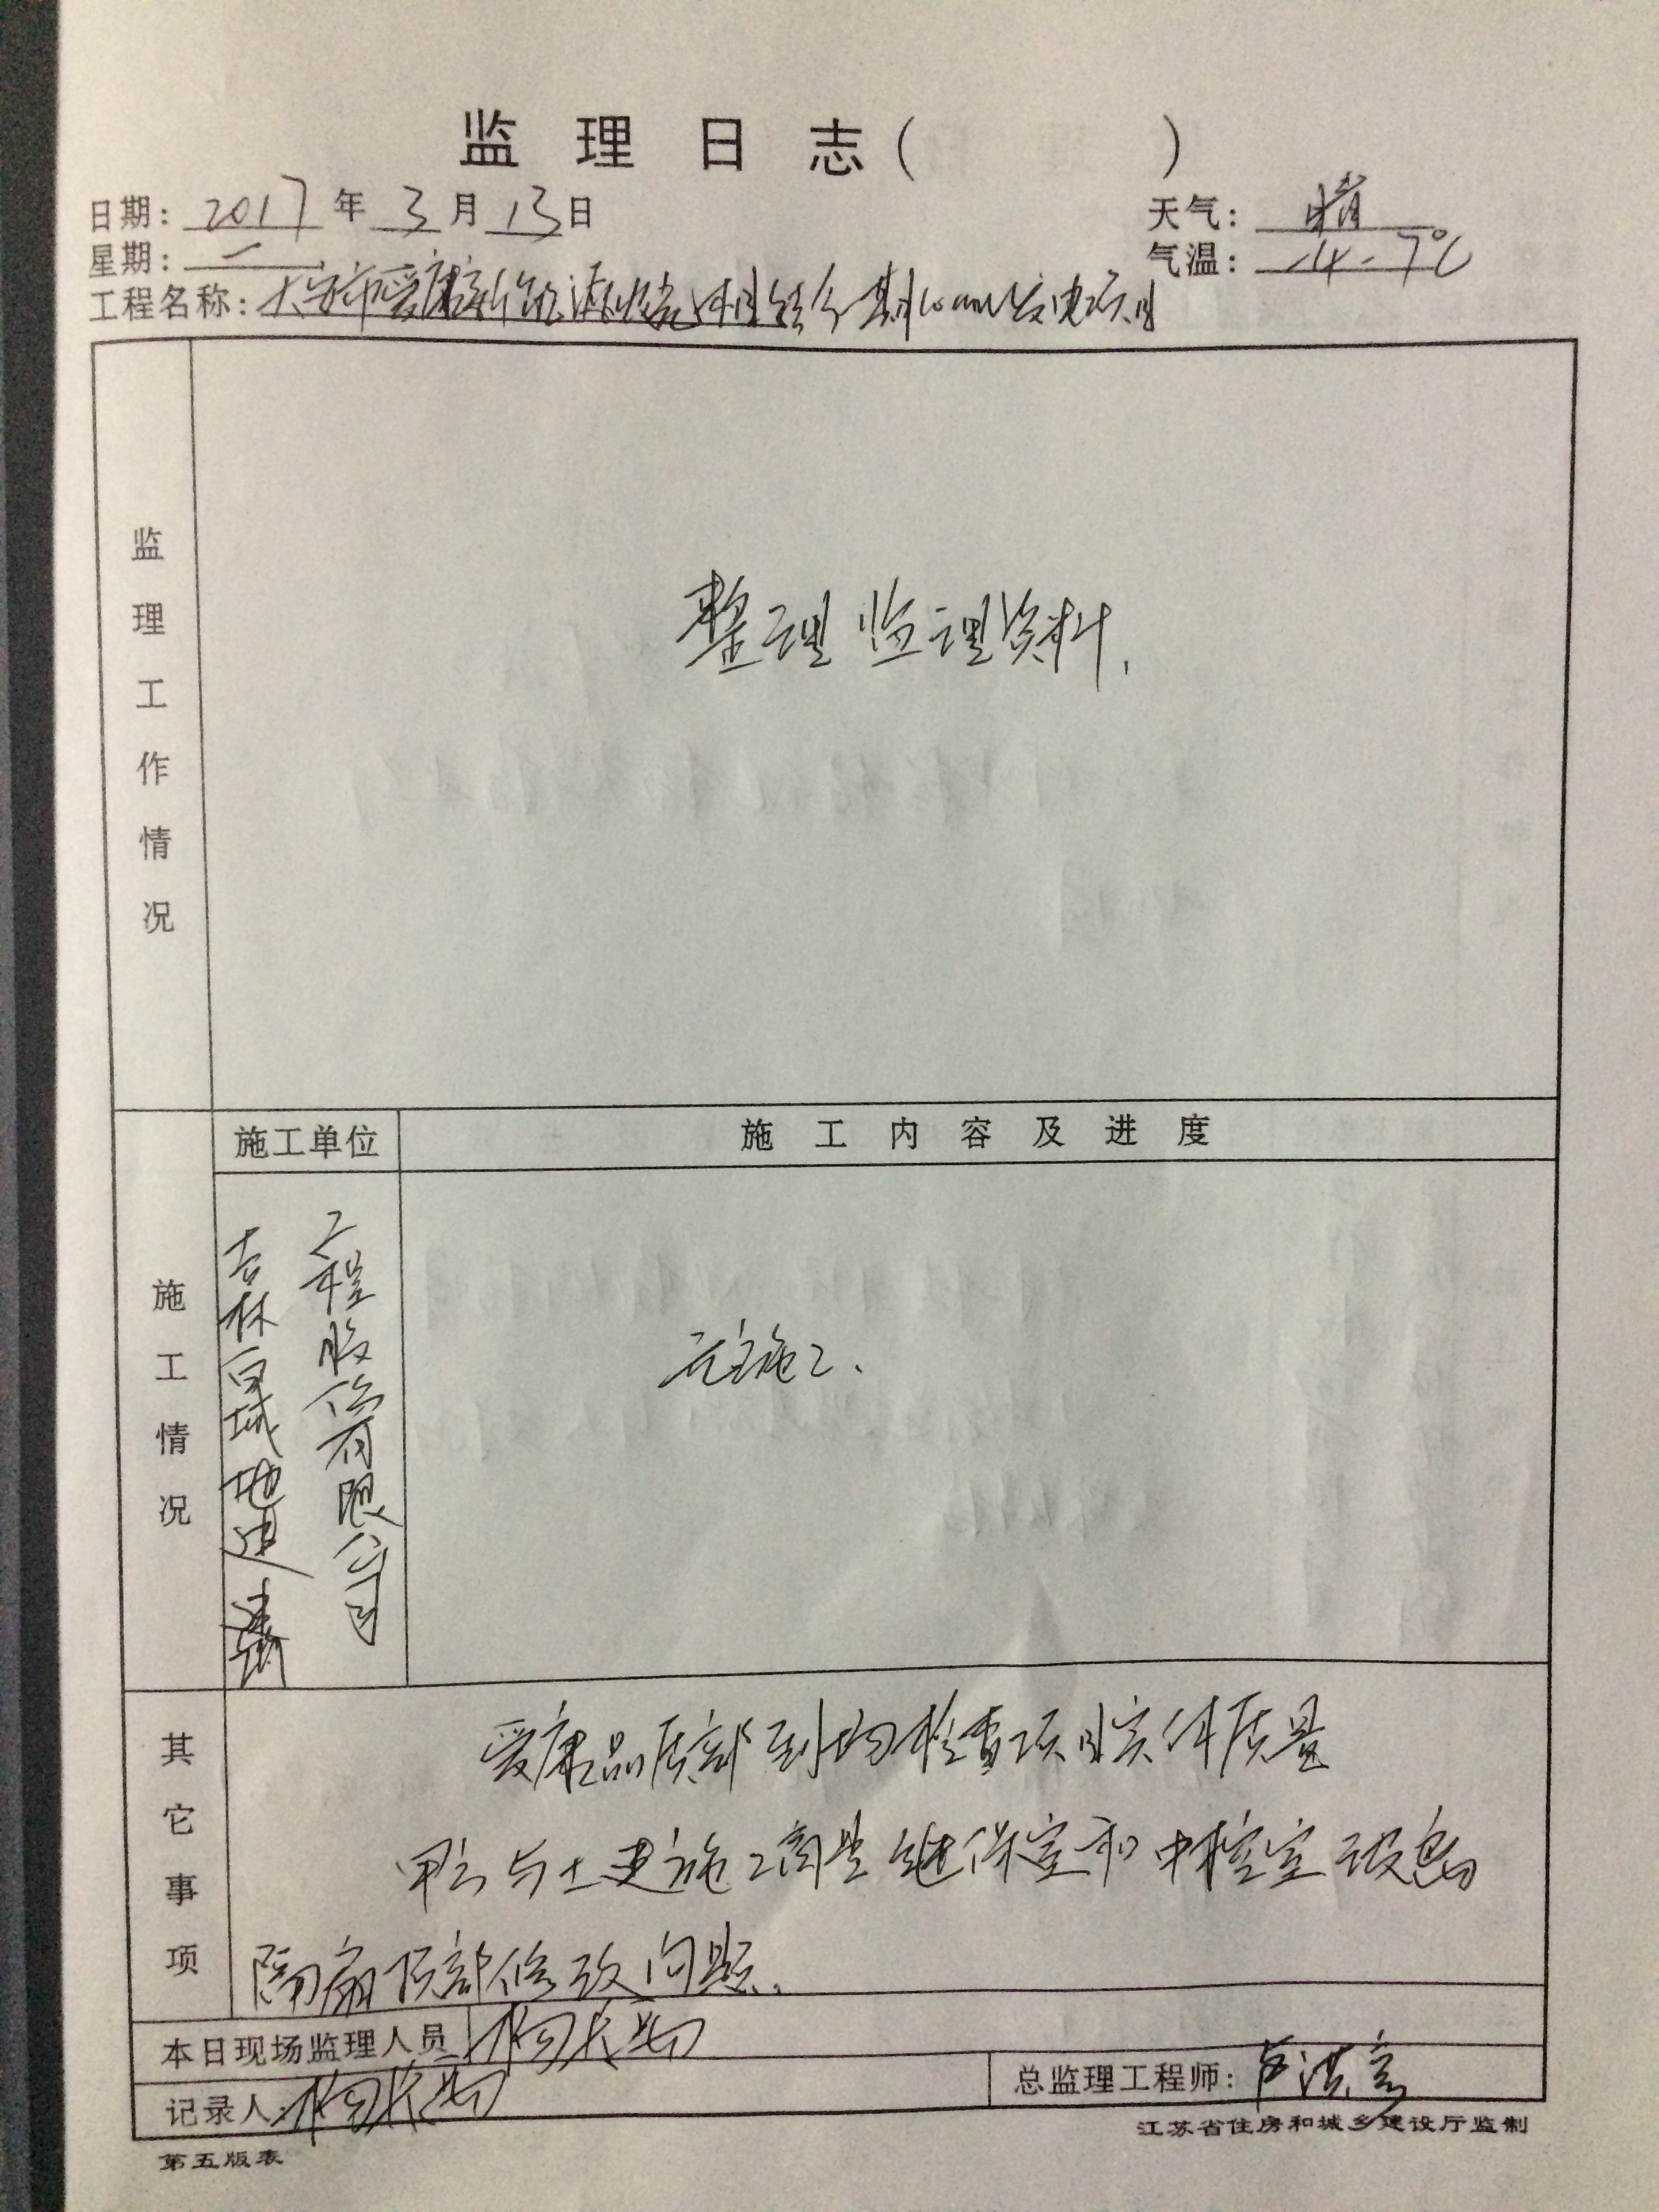 监理日志(　　　)
日期: 2017 年 3 月 13 日
天气: 晴
星期: 一
气温: -4-7℃
工程名称: 大安市爱康新能源 发电项目
监理工作情况
整理监理资料.
施工情况
施工单位
施工内容及进度
吉林白城地
工程股份有限公司
无施工.
其它事项
爱康品质部到场检查项目实体质量
甲方与土建施工商 继保室和中控室设备
隔扇顶部修改问题.
本日现场监理人员
记录人:
总监理工程师: 卢洪
江苏省住房和城乡建设厅监制
第五版表